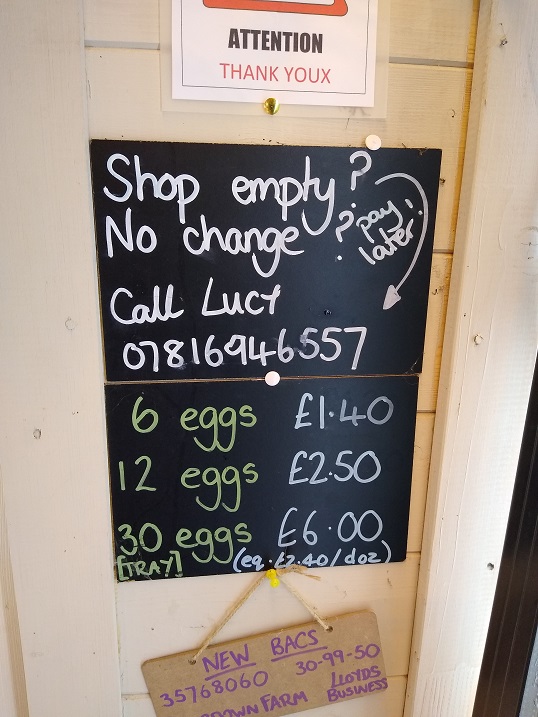 ATTENTION
THANK YOUX
Shop empty?
No change ? pay
later!
Call Lucy
07816946557
6 eggs £1.40
12 eggs £2.50
30 eggs £6.00
[TRAY] (eq. £2.40/doz)
NEW BACS
35768060 30-99-50
FARM LLOYDS
BUSINESS